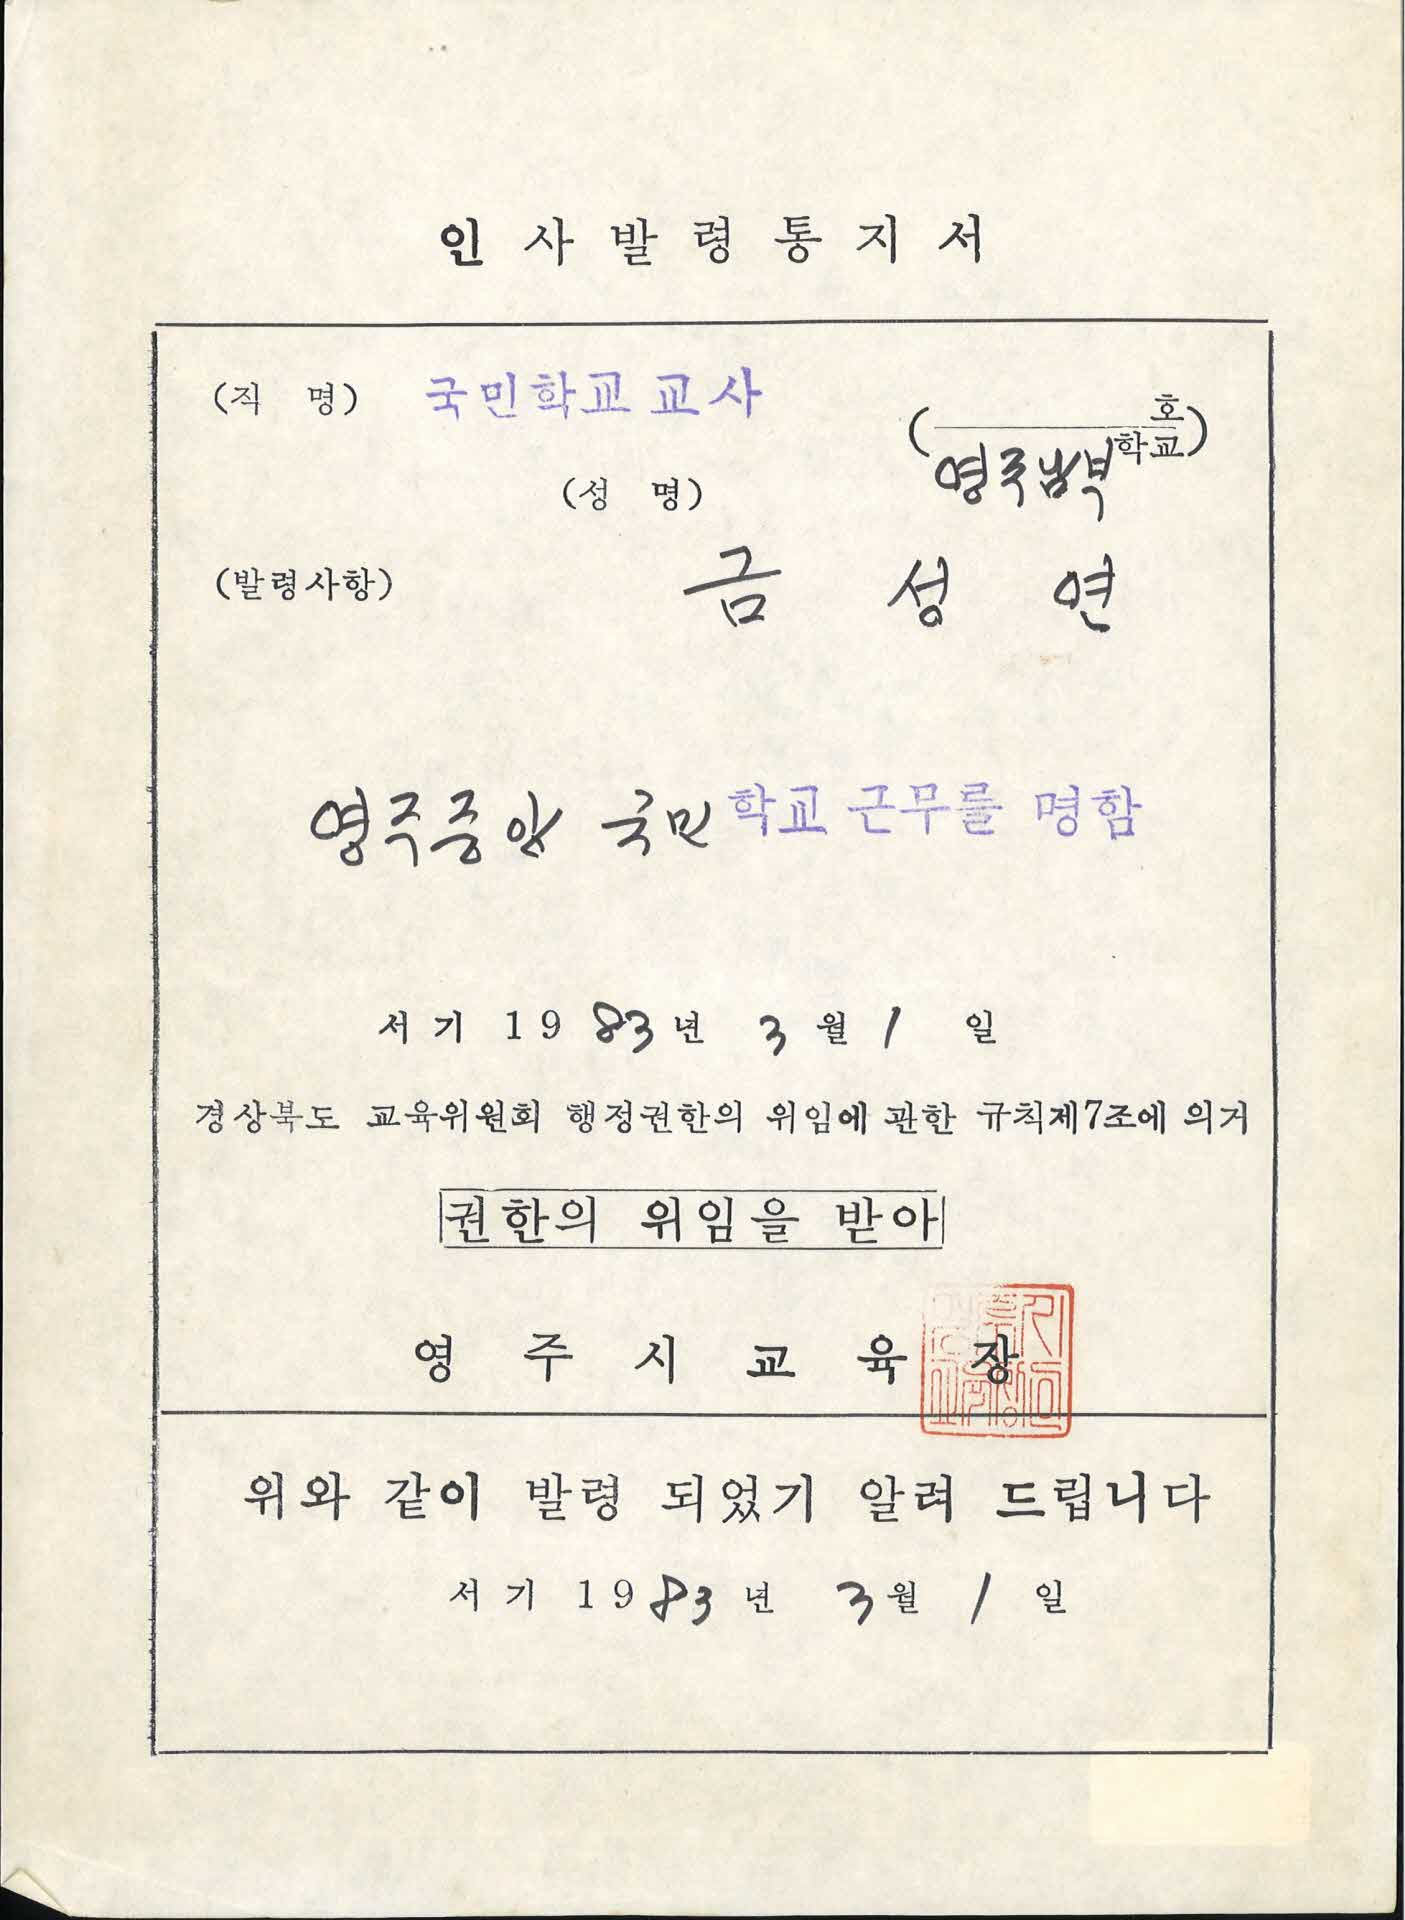 인사발령통지서
(직 명) 국민학교 교사
( 호
영주남부 학교)
(성 명)
(발령사항) 금 성 연
영주중앙 국민 학교 근무를 명함
서기 1983년 3월 1일
경상북도 교육위원회 행정권한의 위임에 관한 규칙제7조에 의거
권한의 위임을 받아
영주시교육장
위와 같이 발령 되었기 알려 드립니다
서기 1983년 3월 1일